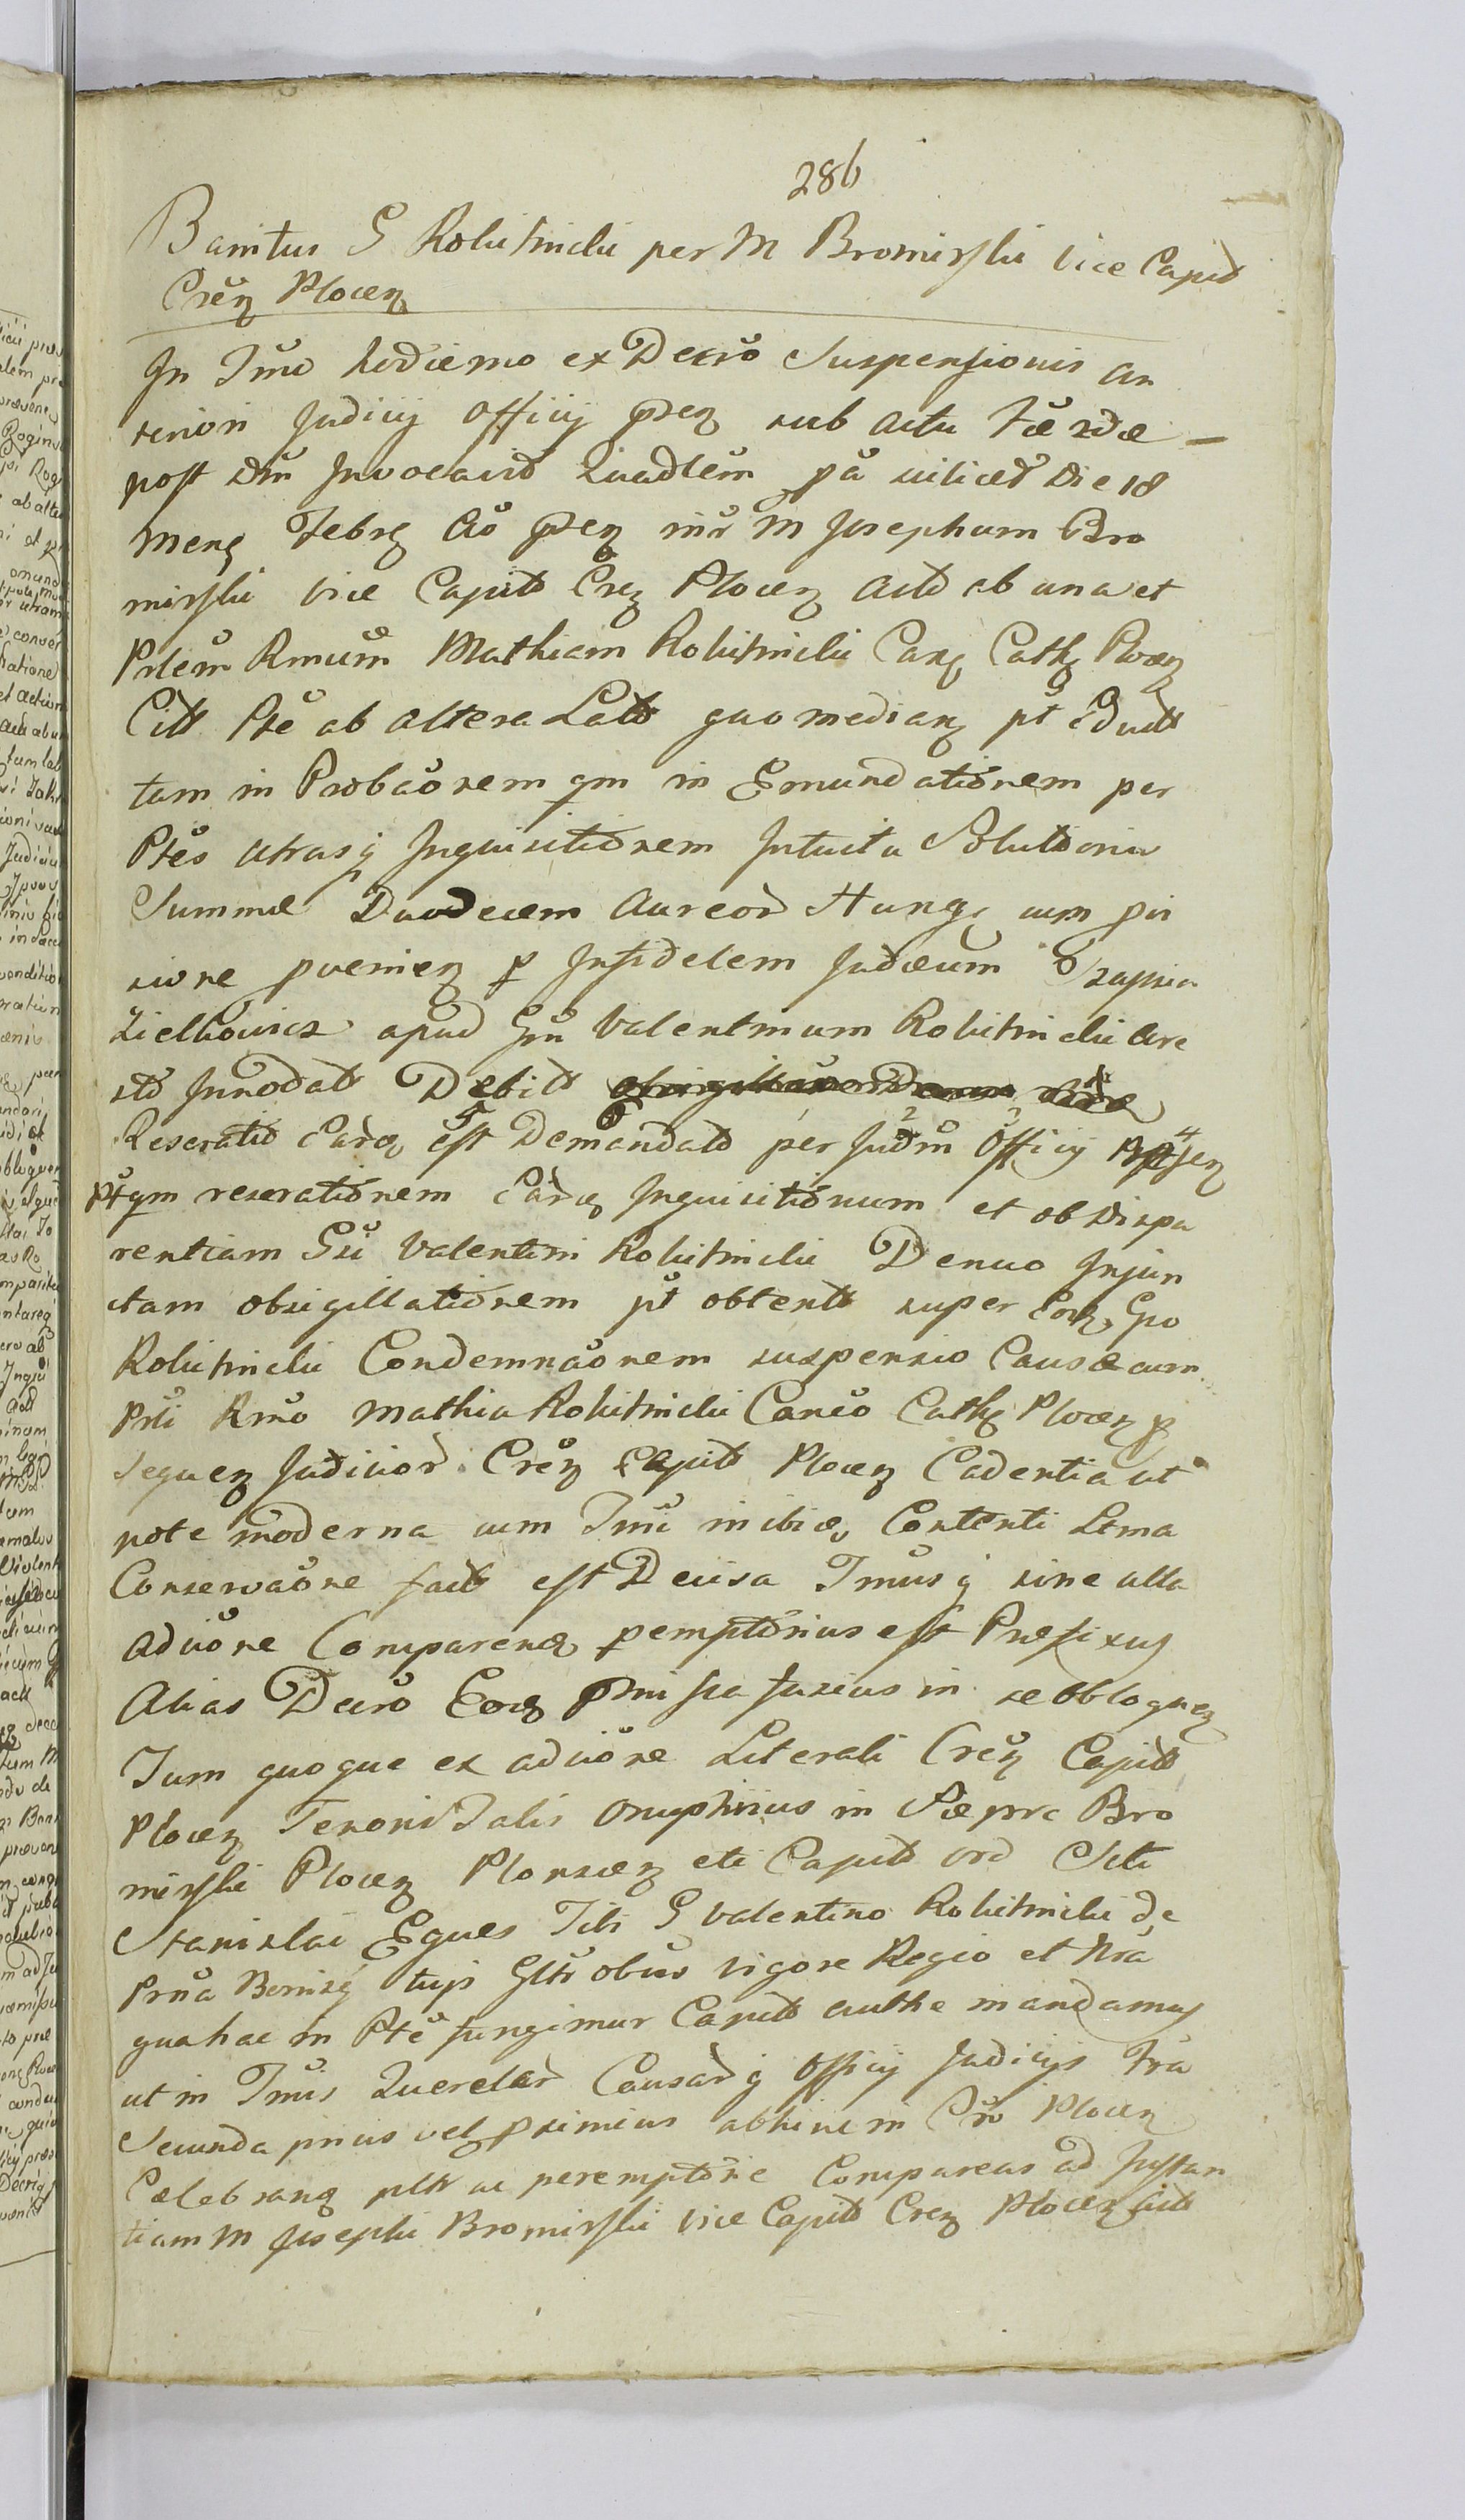 286
Banitus G Rokitnicki per M Bromirski Vice Capit
Cren Plocen
In Tmo hodierno ex Decro Suspensionis an
teriori Judicij Officij pren sub actu Fæ 2dæ —
post Dm Invocavit Quadlem pa vilicet Die 18
Mens Febrs Ao pren inr M Josephum Bro
mirski Vice Capit Cren Plocen Act ab una et
Prlem Rmum Mathiam Rokitnicki Can Cath Plocen
Citt Pte ab altera Latt quo median pt Edutt
tam in Probaonem qm in Emundationem per
Ptes utrasq Inquisitionem Intuitu Solutionis
Summæ Duodecem Aureor Hung cum pro
sione pvenien p Infidelem Judæum
Zielkowicz apud Gm Valentinum Rokitnicki are
std Innodat Debit
Reseratio Card est Demandat per Judm Officij Prsen
ptqm reserationem Card Inquisitionum et ob Dispa
rentiam Gsi Valentini Rokitnicki Denuo Injun
ctam obsigillationem pt obtent super Eod Gso
Rokitnicki Condemnaonem suspensio Causæ cum
Prli Rmo Mathia Rokitnicki Canco Cath Plocen p
sequen Judicior Cren Capit Plocen Cadentia ut
pote moderna cum Tmi inibiq Contenti Lima
Conservaone facta est Decisa Tmusq sine ulla
adcione Comparend pemptorius est Præfixus
Alias Decro Eod pmissa fusius in se obloquen
Tum quoque ex adcione Literali Cren Capit
Plocen Tenoris Talis Onuphrius in Sæprc Bro
mirski Plocen Plonscen etc Capit Ord Scti
Stanislai Eques Tibi G Valentino Rokitnicki de
Prna Bonisq tuis Gltr obus vigore Regio et Nra
qua hac in Pte fungimur Capit authe mandamus
ut in Tmis Querelar Causarq Officij Judicijs Fra
Secunda prius vel pximius abhinc in Cro Plocen
Celebrand pltr ac peremptorie Compareas ad Instan
tiam M Josephi Bromirski Vice Capit Cren Plocen Act